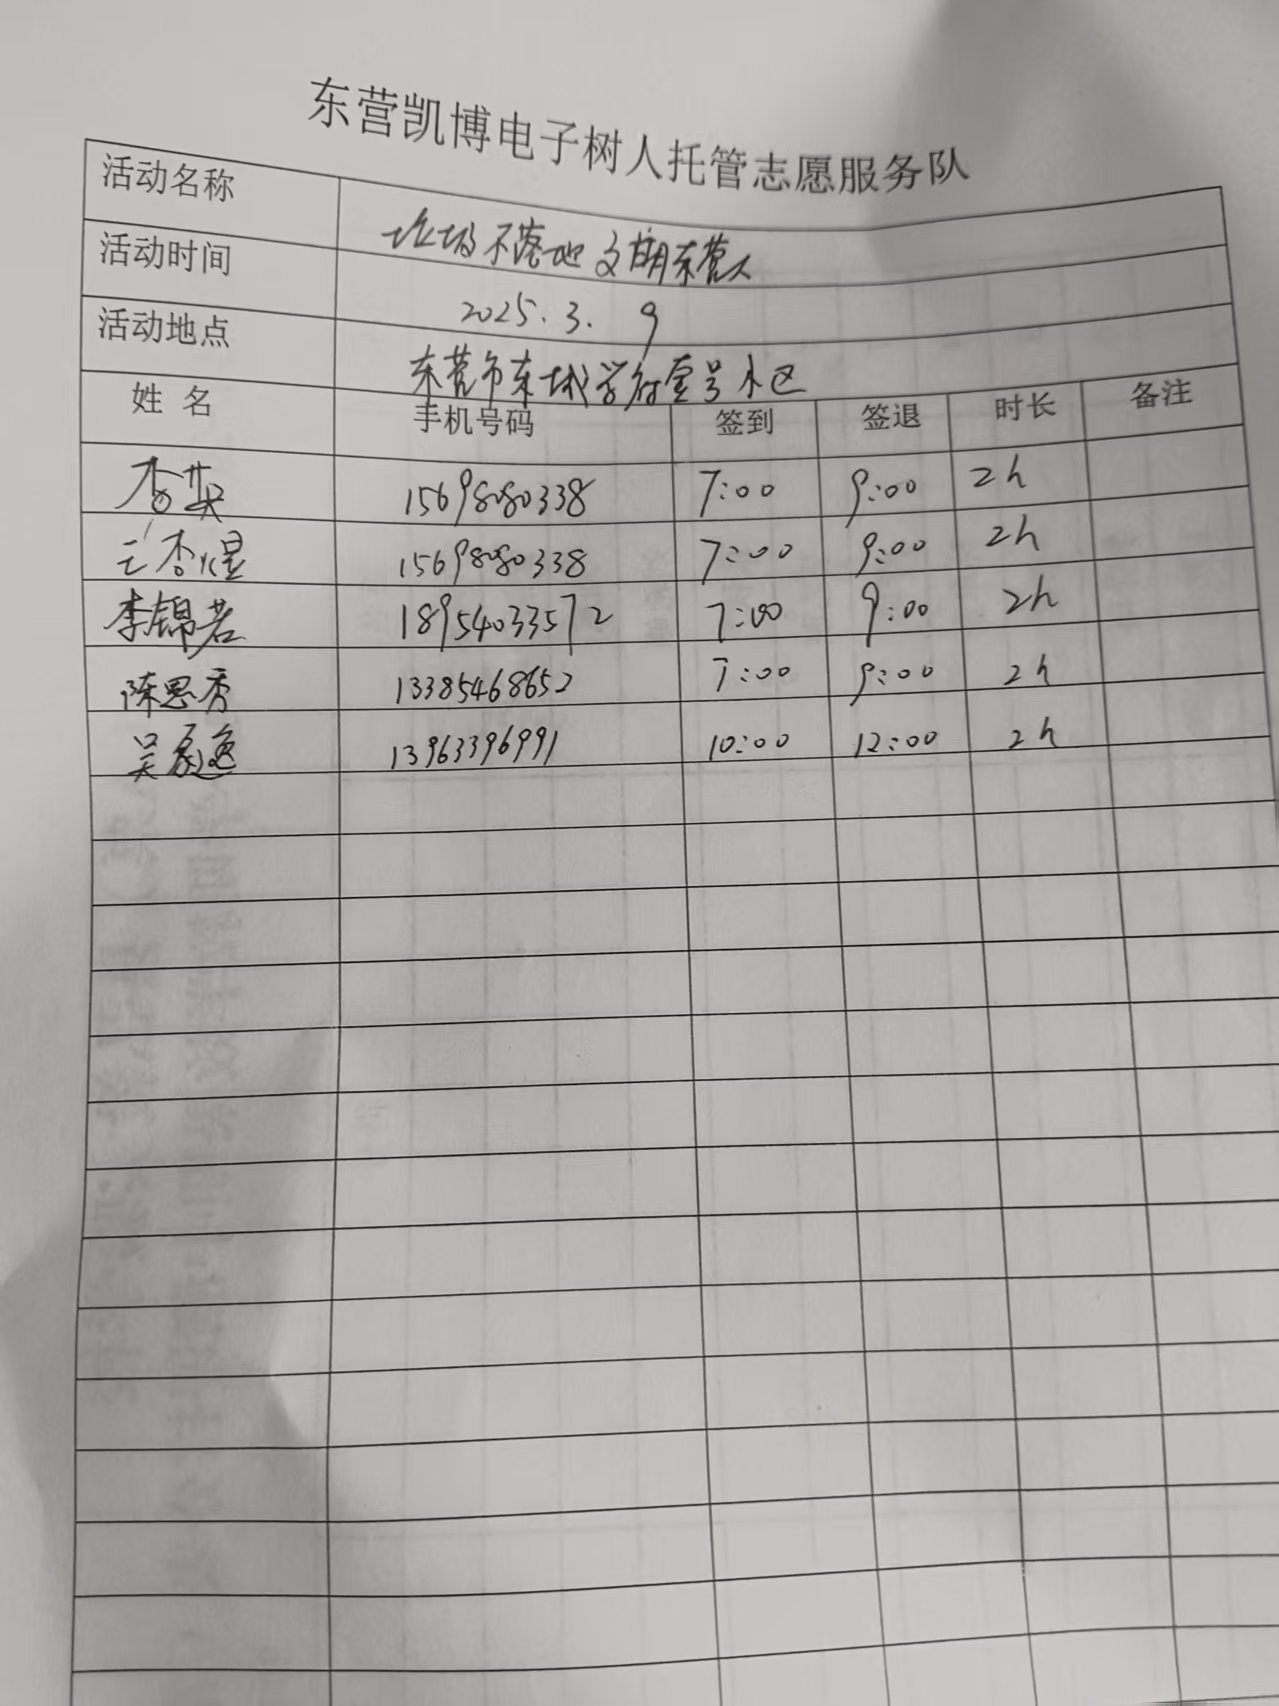 东营凯博电子树人托管志愿服务队
活动名称 垃圾不落地 文明东营人
活动时间 2025.3.9
活动地点 东营市东城学府壹号小区
姓名 手机号码 签到 签退 时长 备注
15698080338 7:00 9:00 2h
15698080338 7:00 9:00 2h
李锦若 18954033572 7:00 9:00 2h
陈思秀 13385468652 7:00 9:00 2h
吴 13963396991 10:00 12:00 2h